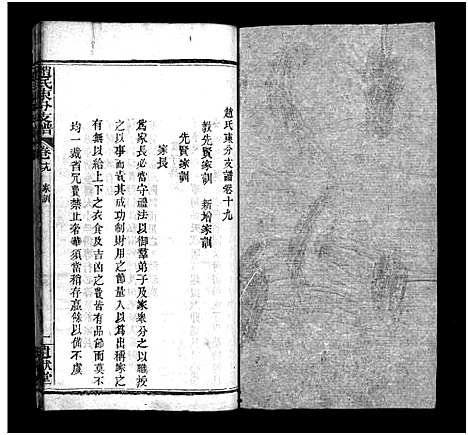 趙氏東分支譜卷十九
教先賢家訓　新增家訓
先賢家訓
家長
為家長必當守禮法以御羣弟子及家衆分之以職授
之以事而責其成功制財用之節量入以為出稱家之
有無以給上下之衣食及吉凶之費皆有品節而莫不
均一裁省冗費禁止奢華須當稍存贏餘以備不虞
趙氏東分支譜
卷十九　家訓
一